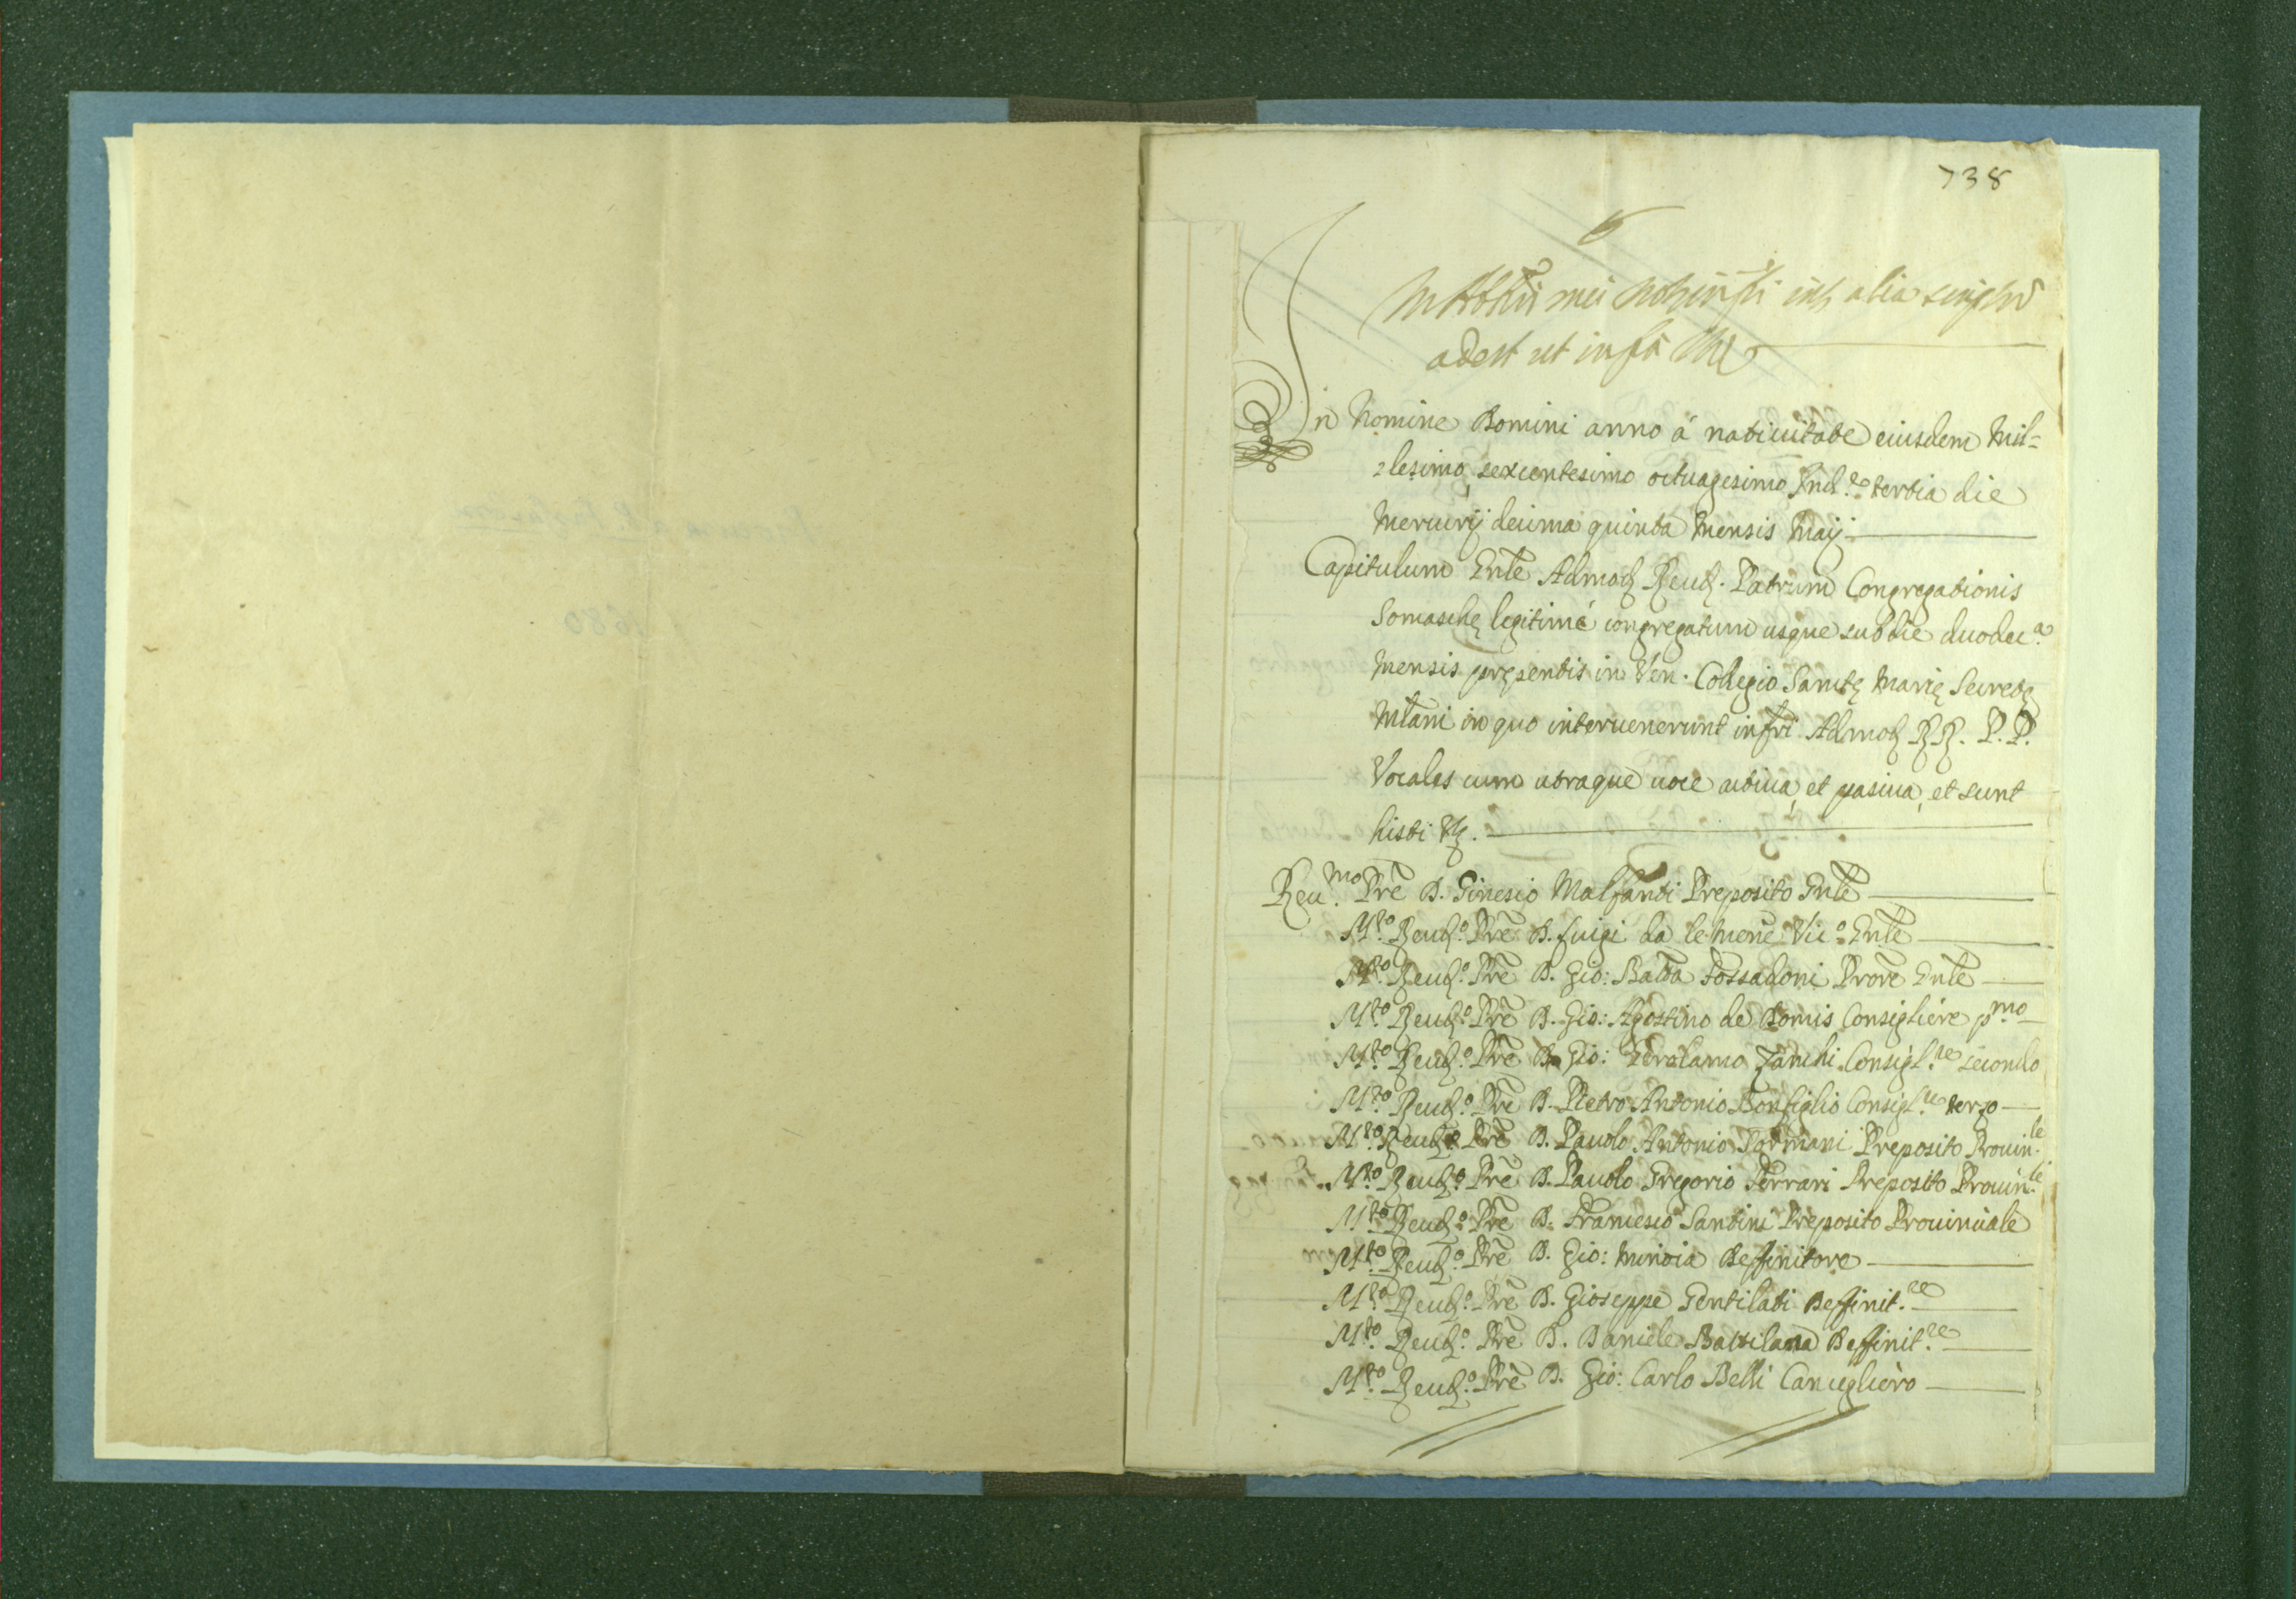 738
adest ut infra
In Nomine Domini anno à natiuitate eiusdem Mil=
lesimo, sexcentesimo octuagesimo Ind.e tertia die
Mercurij decima quinta Mensis Maij
Capitulum Gnle Admod Reud. Patrum Congregationis
Somaschę legitimè congregatum usque sub die duodec.a
Mensis pręsentis in Ven. Collegio Sanctę Marię Secretę
Mlani in quo interuenerunt infri Admod RR. P.P.
Vocales cum utraque uoce actiua, et pasiua, et sunt
histi Vz.
Reu.mo Pre D. Ginesio Malfanti Preposito Gnle
M.to Reud.o Pre D. Luigi da le mene Vic.o Gnle
M.to Reud.o Pre D. Gio: Batta Fossadoni Prore Gnle
M.to Reud.o Pre D. Gio: Agostino de Domis Consigliere p.mo
M.to Reud.o Pre D. Gio: Gerolamo Zanchi Consigl.re secondo
M.to Reud.o Pre D. Pietro Antonio Bonfiglio Consigl.re terzo
M.to Reud.o Pre D. Pauolo Antonio Sormani Preposito Prouin.le
M.to Reud.o Pre D. Pauolo Gregorio Ferrari Preposito Prouin.le
M.to Reud.o Pre D. Francesco Santini Preposito Prouinciale
M.to Reud.o Pre D. Gio: Minoia Deffinitore
M.to Reud.o Pre D. Gioseppe Gentilati Deffinit.re
M.to Reud.o Pre D. Daniele Battilana Deffinit.re
M.to Reud.o Pre D. Gio: Carlo Belli Cancegliero